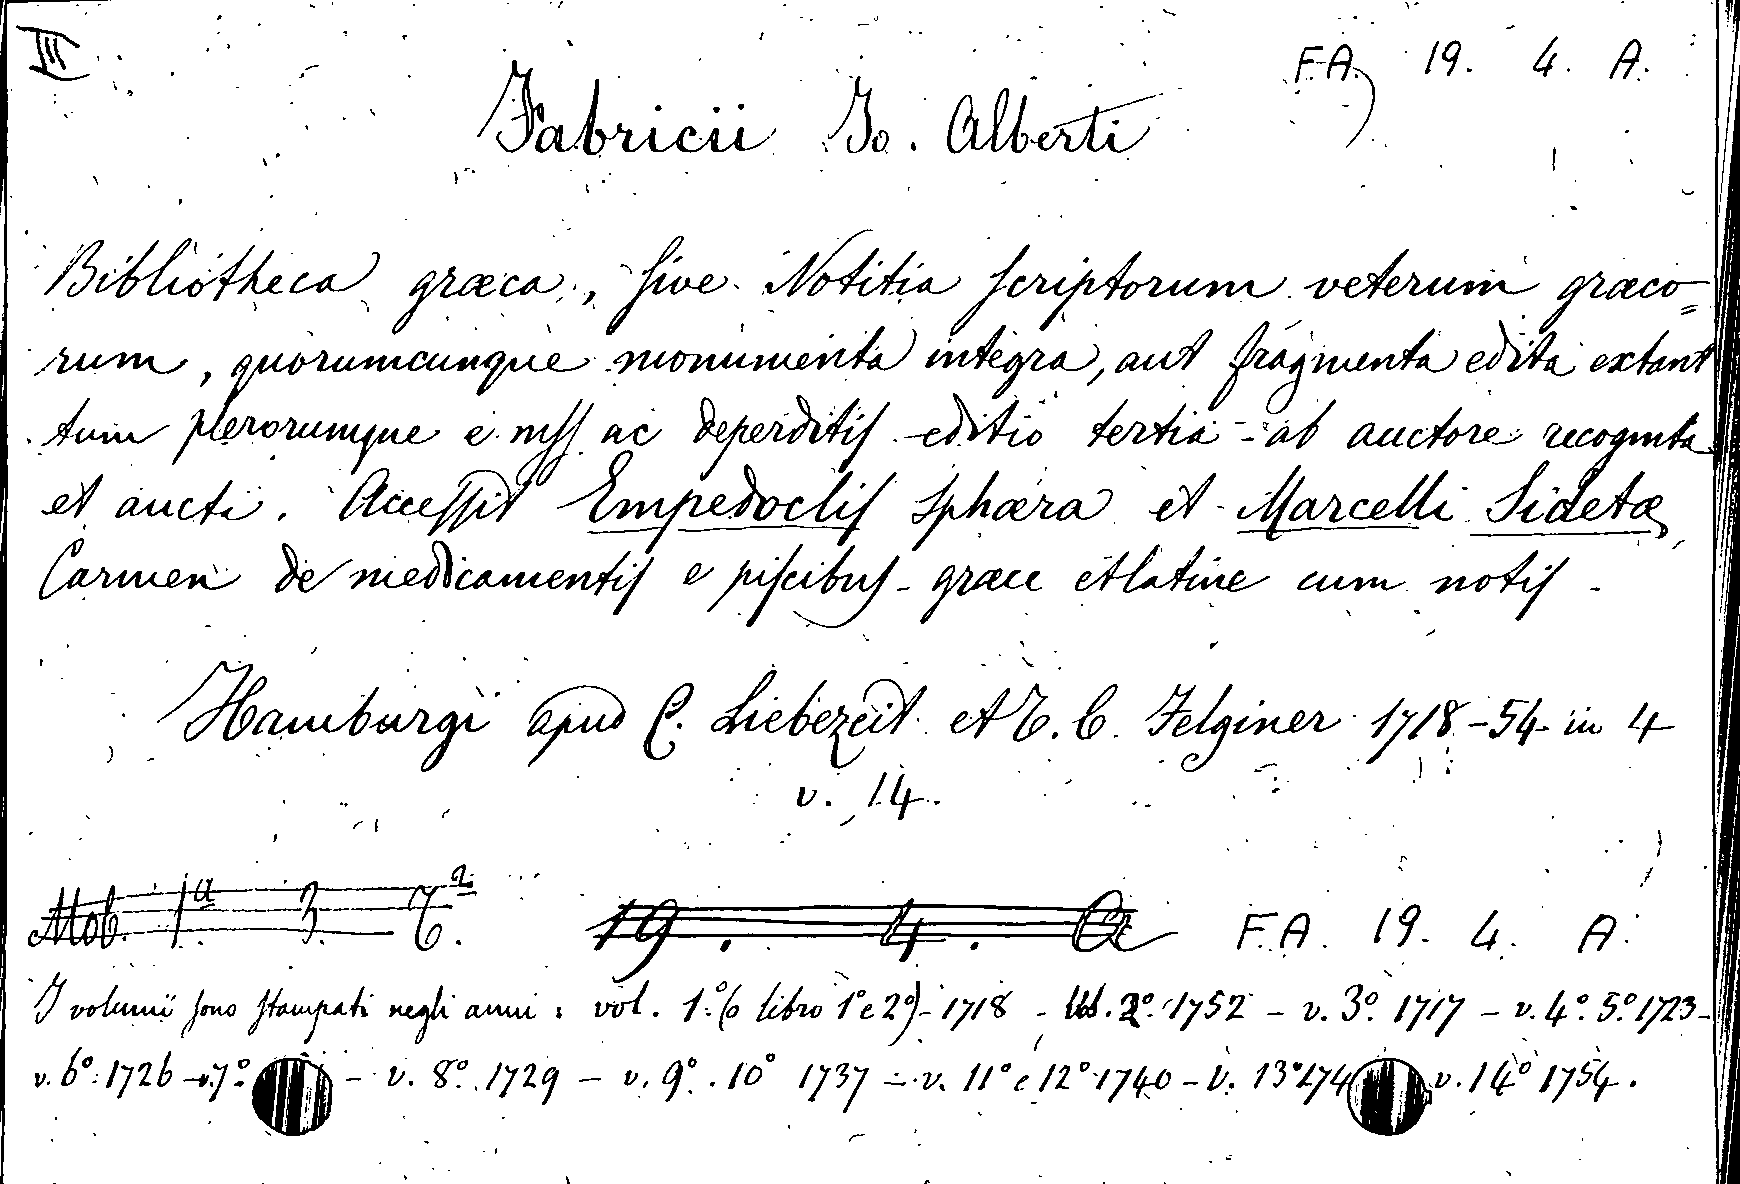 III
F.A. 19. 4. A.
Fabricii Jo. Alberti
Bibliotheca græca, sive Notitia scriptorum veterum græco=
rum, quorumcunque monumenta integra, aut fragmenta edita extant
tum plerorumque e mss ac deperditis editio tertia ab auctore recognita
et aucti. Accessit Empedoclis sphæra et Marcelli Sidetæ
Carmen de medicamentis e piscibus græce et latine cum notis.
Hamburgi apud C. Liebezeit et T. C. Felginer 1718-54 in 4
v. 14.
Mob. 1ª 3. 19. 4. A F.A. 19. 4. A.
I volumi sono stampati negli anni: vol. 1º (o libro 1º e 2º) - 1718 - 2º. 1752 - v. 3º. 1717 - v. 4º. 5º. 1723 -
v. 6º. 1726 - v. 7º - v. 8º. 1729 - v. 9º. 10º 1737 - v. 11º e 12º 1740 - v. 13º v. 14º 1754.